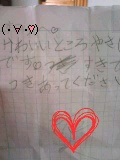 (・∀・)
けわいいところ やさし
です すきで
つきあってください